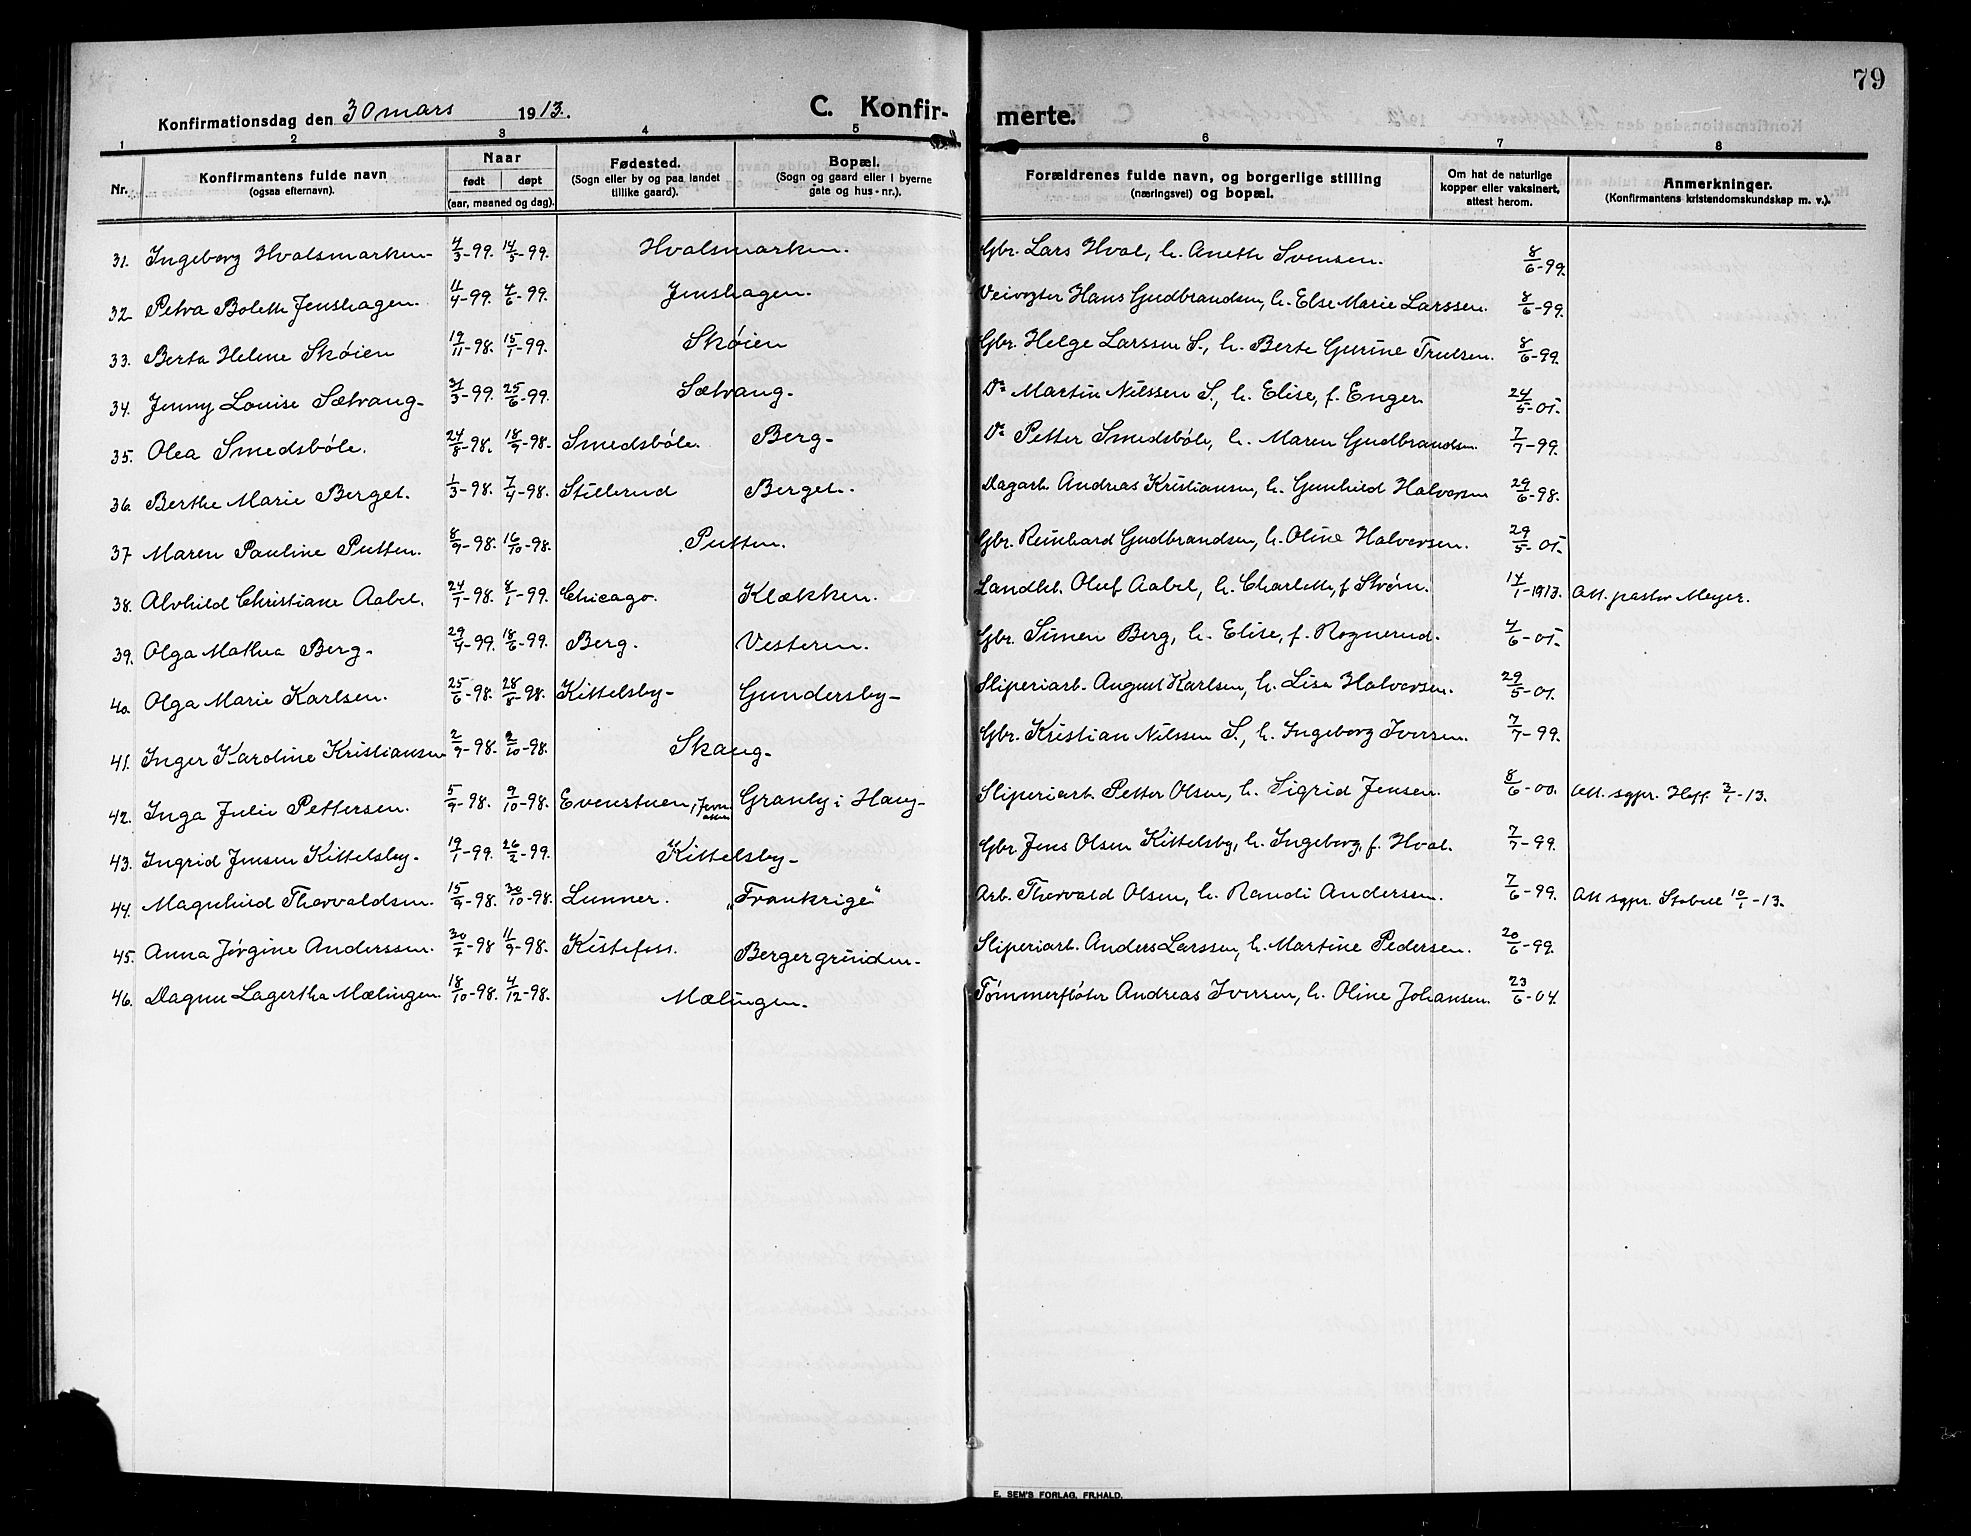 79
Konfirmationsdag den 30 mars 1913. C. Konfir- merte.
1 2 3 4 5 6 7 8
Nr. Konfirmantens fulde navn (ogsaa efternavn). Naar født døpt (aar, maaned og dag). Fødested. (Sogn eller by og paa landet tillike gaard). Bopæl. (Sogn og gaard eller i byerne gate og hus-nr.). Forældrenes fulde navn, og borgerlige stilling (næringsvei) og bopæl. Om hat de naturlige kopper eller vaksinert, attest herom. Anmerkninger. (Konfirmantens kristendomskundskap m. v.).
31. Ingeborg Hvalsmarken 4/3-99. 14/5-99. Hvalsmarken. Gbr. Lars Hval, h. Anette Svensen. 8/6-99.
32 Petra Bolette Jenshagen. 11/4-99. 4/6-99. Jenshagen. Veivogter Hans Gudbrandsen, h. Else Marie Larssen. 8/6-99.
33. Berta Helene Skøien 19/11-98. 15/1-99. Skøien Gbr. Helge Larssen S., h. Berte Gurine Trulsen. 8/6-99.
34. Jenny Louise Sætrang 31/3-99. 25/6-99. Sætrang. Do Martin Nilssen S., h. Elise, f. Enger. 24/5-05.
35. Olea Smedsbøle. 24/8-98. 18/9-98. Smedsbøle. Berg Do Petter Smedsbøle, h. Maren Gudbrandsen 7/7-99.
36. Berthe Marie Berget. 1/3-98. 7/4-98. Stillerud Berget. Dagarb. Andreas Kristiansen, h. Gunhild Halvorsen 29/6-98.
37 Maren Pauline Putten. 8/9-98. 16/10-98. Putten. Gbr. Reinhard Gudbrandsen, h. Oline Halvorsen. 29/5-05.
38. Alvhild Christiane Aabel. 24/7-98. 8/1-99. Chicago. Klækken. Landh. Oluf Aabel, h. Charlotte, f. Strøm. 14/1-1913. Att. pastor Meyer.
39. Olga Mathea Berg. 29/4-99. 18/6-99. Berg. Vesteren. Gbr. Simen Berg, h. Elise, f. Rognerud. 4/6-05
40 Olga Marie Karlsen. 25/6-98. 28/8-98. Kittelsby Gundersby Sliperiarb. August Karlsen, h. Lisa Halvorsen. 29/5-01.
41. Inger Karoline Kristiansen 2/9-98. 9/10-98. Skaug. Gbr. Kristian Nilssen S., h. Ingeborg Iversen. 7/7-99.
42. Inga Julie Pettersen. 5/9-98. 9/10-98. Evenstuen, Granby i Haug Sliperiarb. Petter Olsen, h. Sigrid Jensen. 8/6-00. Att. sgpr. Hoff 3/1-13.
43. Ingrid Jensen Kittelsby. 19/1-99. 26/2-99. Kittelsby Gbr. Jens Olsen Kittelsby, h. Ingeborg, f. Hval. 7/7-99.
44. Magnhild Thorvaldsen. 15/9-98. 30/10-98. Lunner. "Frankrige" Arb. Thorvald Olsen, h. Randi Anderssen. 7/6-99. Att sgpr. Stabell 10/1-13.
45. Anna Jørgine Anderssen. 30/7-98 11/9-98. Kistefoss. Bergergrinden. Sliperiarb. Anders Larssen, h. Martine Pedersen. 20/6-99.
46. Dagny Lagertha Mælingen. 18/10-98. 4/12-98. Mælingen. Tømmerfløter Andreas Iversen, h. Oline Johansen. 23/6-04.
E. SEM'S FORLAG, FR.HALD.